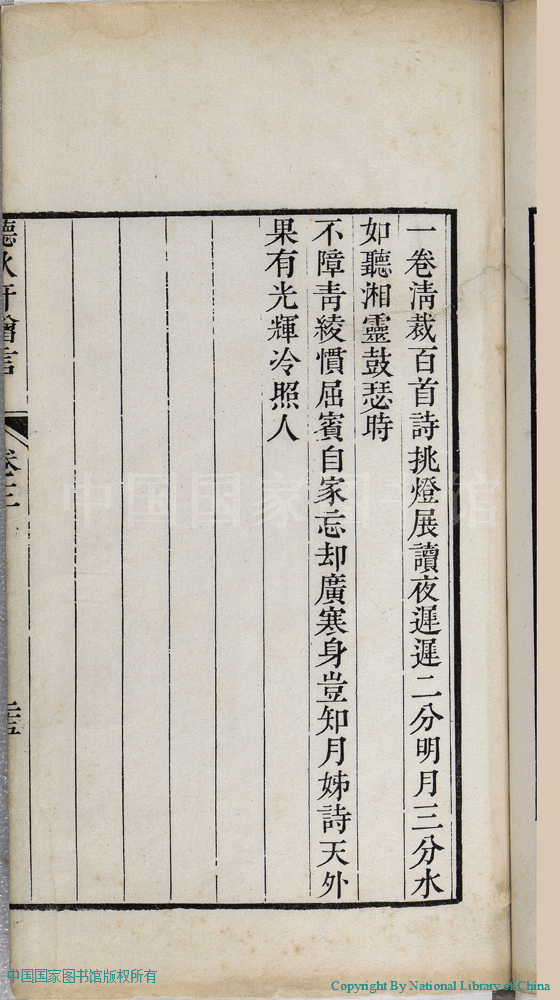 一卷清裁百首詩挑燈展讀夜遲遲二分明月三分水
如聽湘靈鼓瑟時
不障青綾慣屈賓自家忘却廣寒身豈知月姊詩天外
果有光輝冷照人
卷三
中国国家图书馆
中国国家图书馆版权所有
Copyright By National Library of China